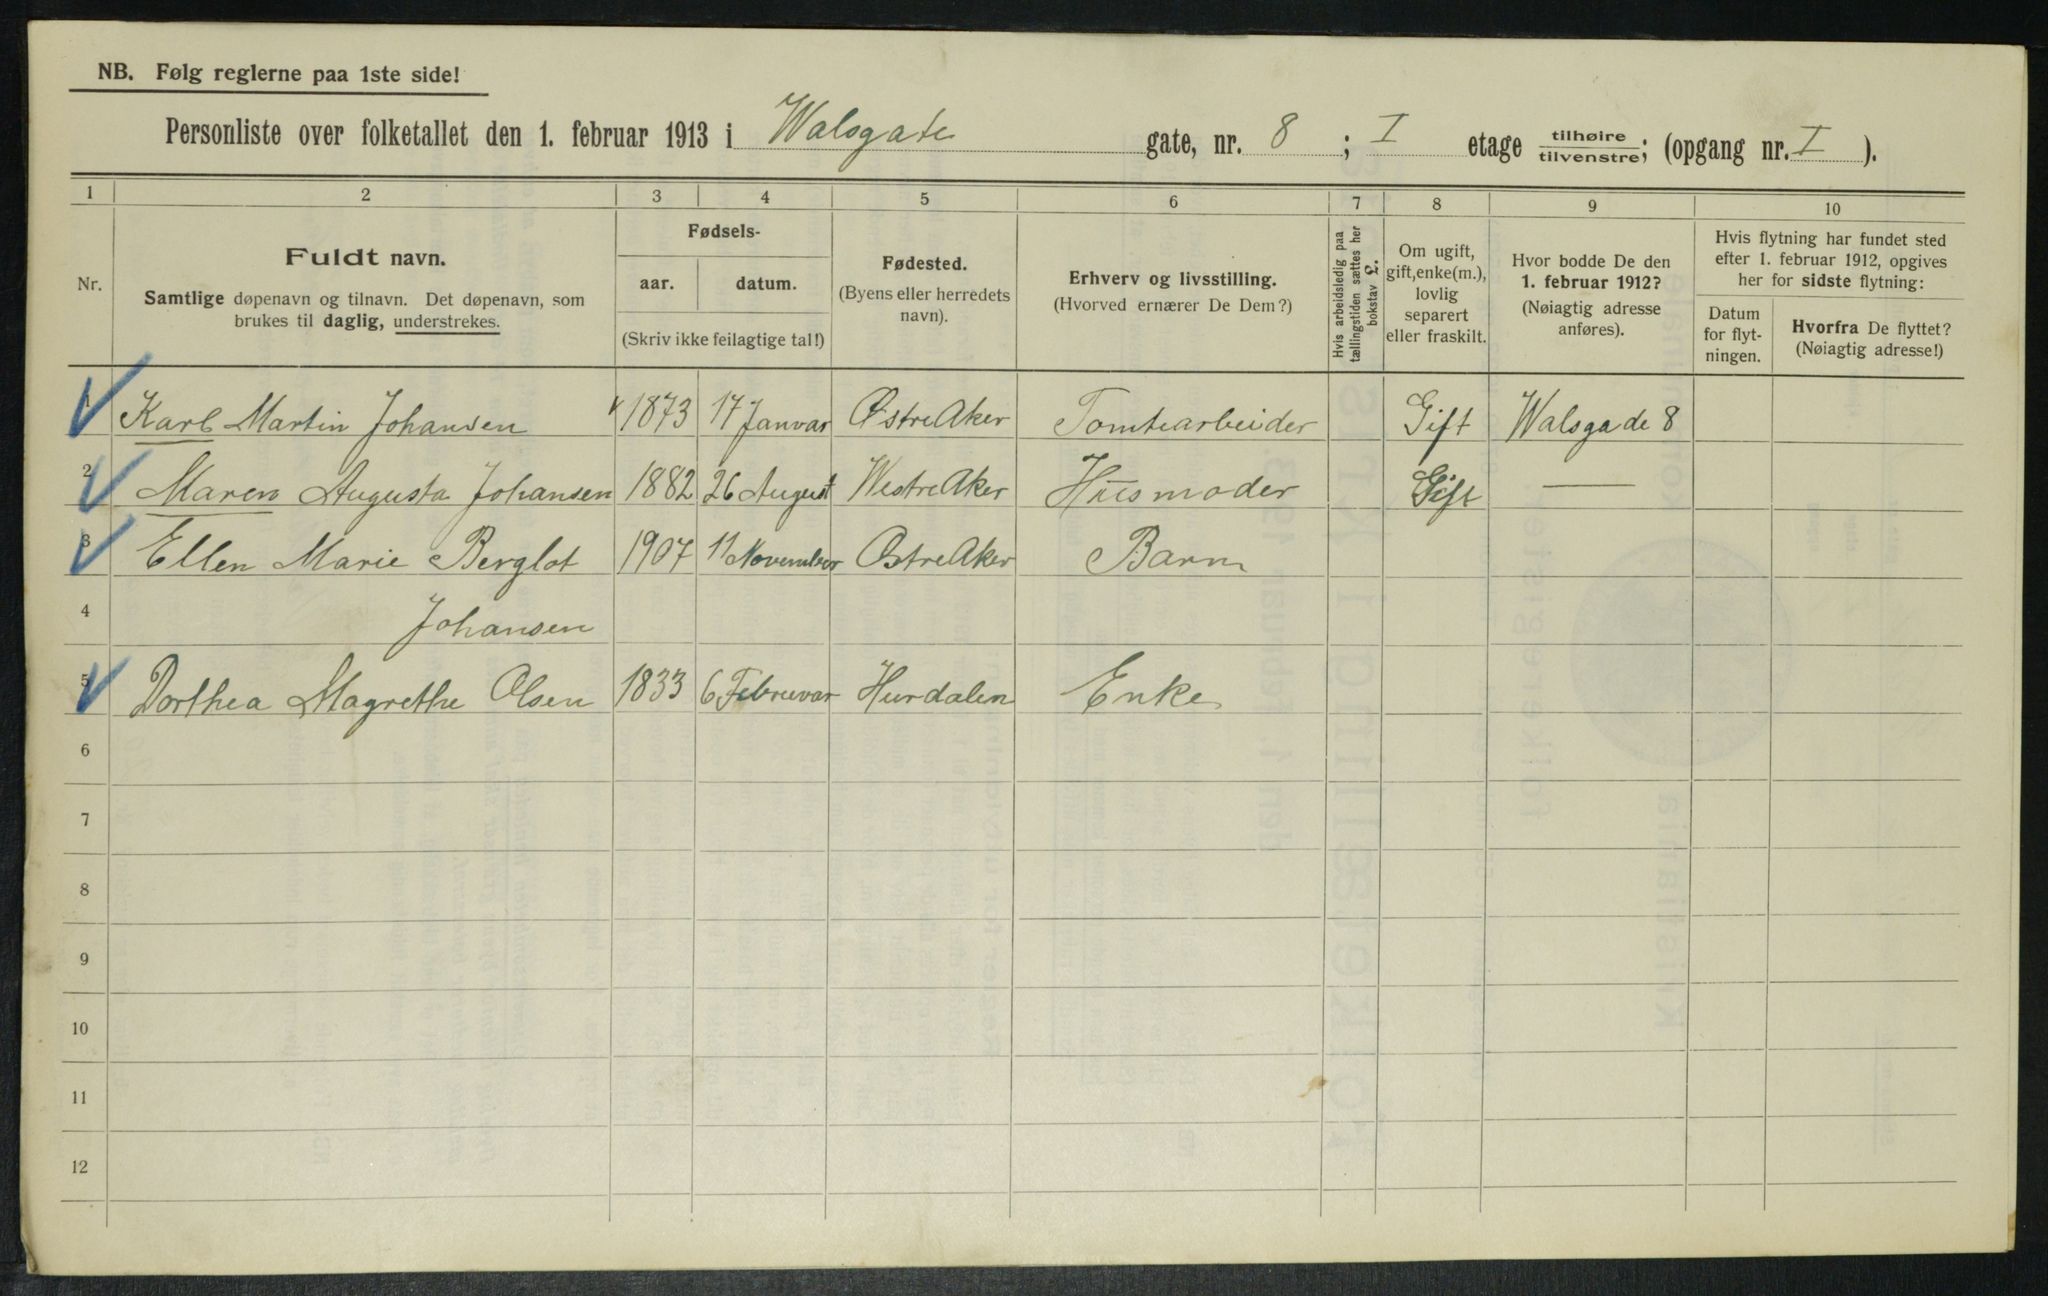 NB. Følg reglerne paa 1ste side!
Personliste over folketallet den 1. februar 1913 i Walsgate gate, nr. 8 ; I etage tilhøire/tilvenstre; (opgang nr. I ).
1 2 3 4 5 6 7 8 9 10
Nr.
Fuldt navn.
Samtlige døpenavn og tilnavn. Det døpenavn, som
brukes til daglig, understrekes.
Fødsels-
aar. datum.
(Skriv ikke feilagtige tal!)
Fødested.
(Byens eller herredets
navn).
Erhverv og livsstilling.
(Hvorved ernærer De Dem?)
Hvis arbeidsledig paa
tællingstiden sættes her
bokstav L.
Om ugift,
gift, enke(m.),
lovlig
separert
eller fraskilt.
Hvor bodde De den
1. februar 1912?
(Nøiagtig adresse
anføres).
Hvis flytning har fundet sted
efter 1. februar 1912, opgives
her for sidste flytning:
Datum
for flyt-
ningen.
Hvorfra De flyttet?
(Nøiagtig adresse!)
1 Karl Martin Johansen 1873 17 Januar Østre Aker Tomtearbeider Gift Walsgade 8
2 Maren Augusta Johansen 1882 26 August Westre Aker Husmoder Gift —
3 Ellen Marie Berglot 1907 11 November Østre Aker Barn
4 Johansen
5 Dorthea Magrethe Olsen 1833 6 Februar Hurdalen Enke
6
7
8
9
10
11
12